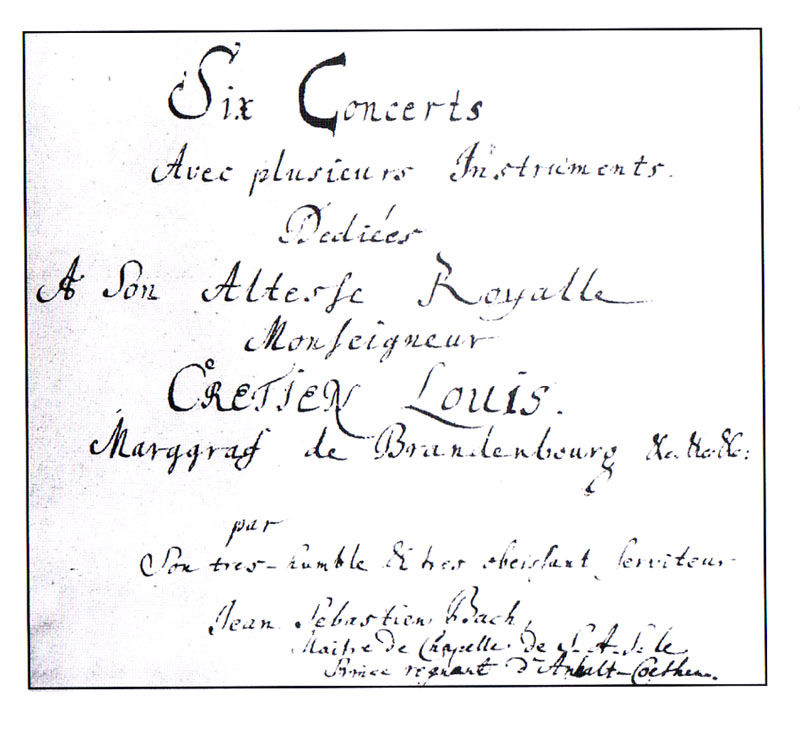 Six Concerts
Avec plusieurs Instruments.
Dediées
A Son Altesse Royalle
Monseigneur
CRETIEN Louis.
Marggraf de Brandenbourg &c. &c. &c:
par
Son tres-humble & tres obeissant serviteur
Jean Sebastien Bach,
Maitre de Chapelle de S. A. S. le
Prince regnant d'Anhalt-Coethen.